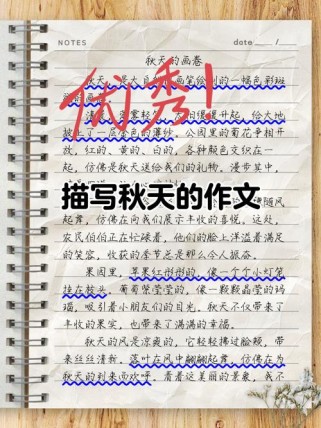 NOTES date: /
秋天的画卷
秋天,
画笔绘制的一幅色彩斑
优秀!
升起,给大地
披上了一层金色的薄纱。公园里的菊花争相开
放,红的、黄的、白的,各种颜色交织在一
起,仿佛是秋天送给我们的礼物。漫步其中,
描写秋天的作文
随风
起舞,仿佛在向我们展示丰收的喜悦。远处,
农民伯伯正在忙碌着,他们的脸上洋溢着满足
的笑容,收获的季节总是那么令人振奋。
果园里,苹果红彤彤的,像一个个小灯笼
挂在枝头。葡萄紫莹莹的,像一颗颗晶莹的玛
瑙,吸引着小朋友们的目光。秋天不仅带来了
丰收的果实,也带来了满满的幸福。
秋天的风是凉爽的,它轻轻拂过脸颊,带
来丝丝清新。落叶在风中翩翩起舞,仿佛在为
秋天的到来而欢呼。看着这美丽的景象,我不